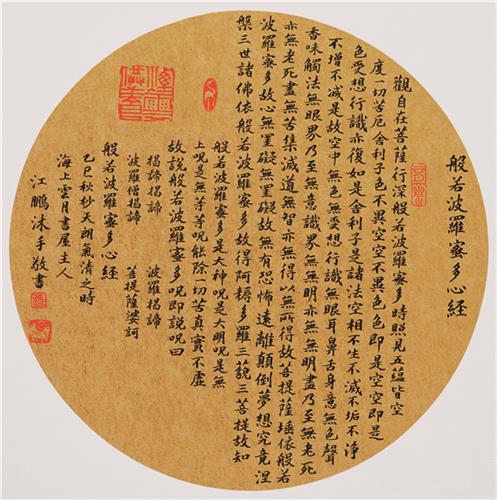 般若波羅蜜多心經
觀自在菩薩行深般若波羅蜜多時照見五蘊皆空
度一切苦厄舍利子色不異空空不異色色即是空空即是
色受想行識亦復如是舍利子是諸法空相不生不滅不垢不淨
不增不減是故空中無色無受想行識無眼耳鼻舌身意無色聲
香味觸法無眼界乃至無意識界無無明亦無無明盡乃至無老死
亦無老死盡無苦集滅道無智亦無得以無所得故菩提薩埵依般若
波羅蜜多故心無罣礙無罣礙故無有恐怖遠離顛倒夢想究竟涅
槃三世諸佛依般若波羅蜜多故得阿耨多羅三藐三菩提故知
般若波羅蜜多是大神呪是大明呪是無
上呪是無等等呪能除一切苦真實不虛
故說般若波羅蜜多呪即說呪曰
揭諦揭諦 波羅揭諦
波羅僧揭諦 菩提薩婆訶
般若波羅蜜多心經
乙巳秋杪天朗氣清之時
海上雲月書屋主人
江鵬沐手敬書